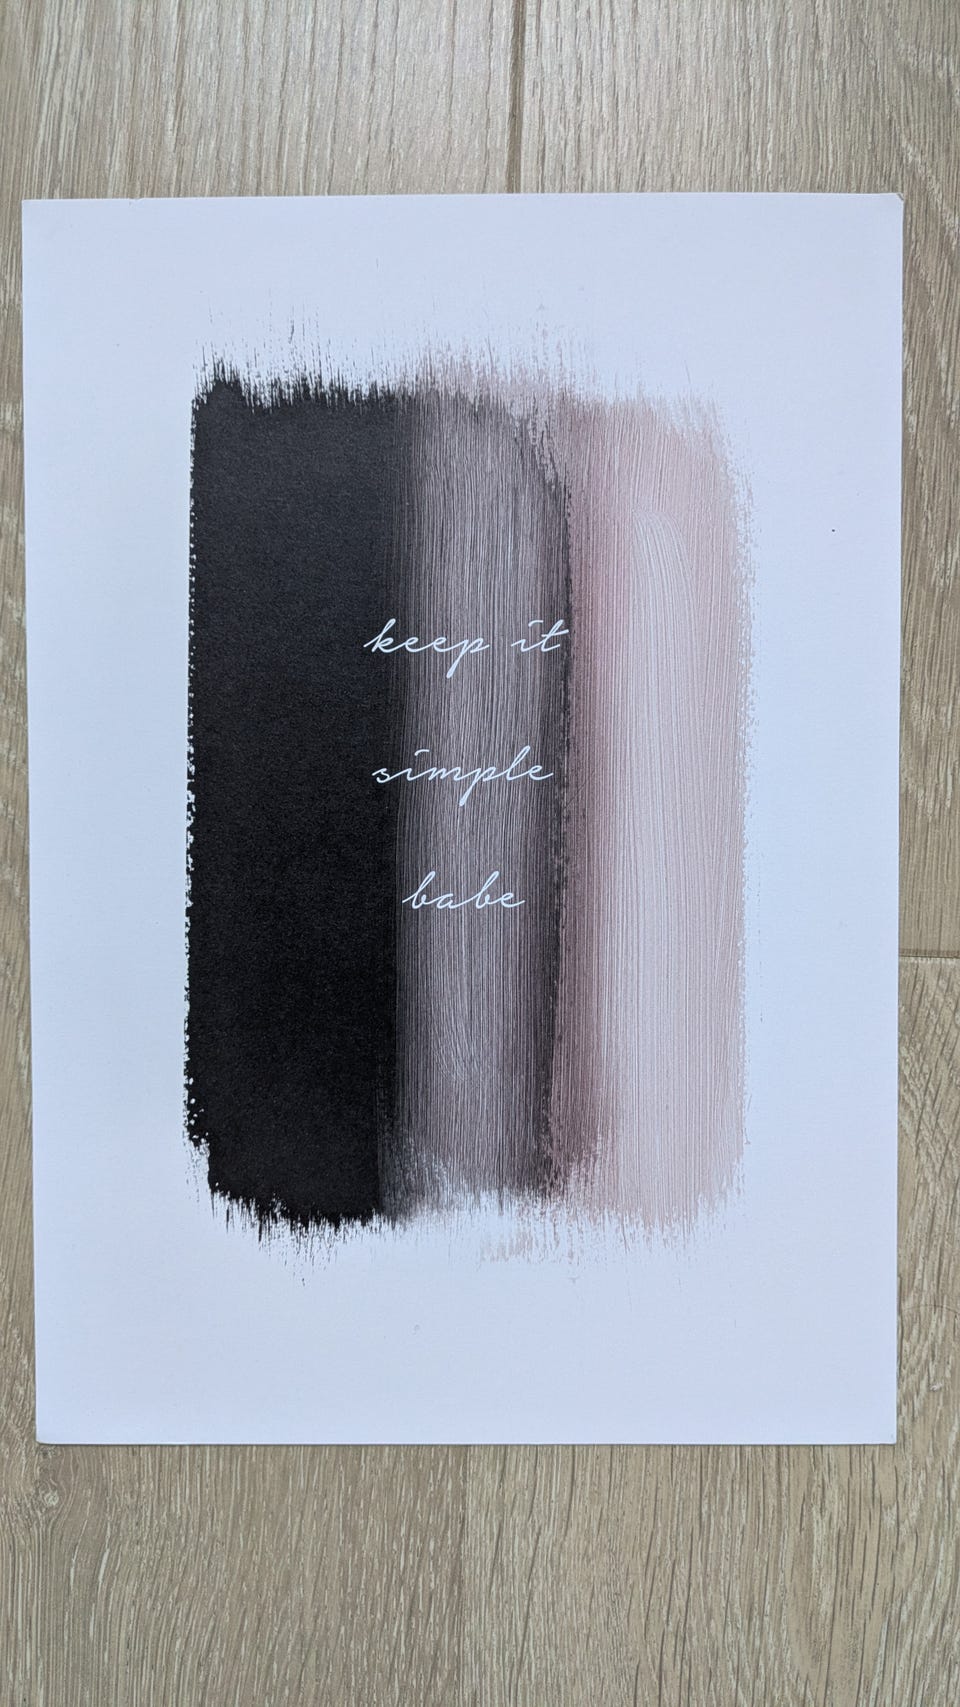 keep it
simple
babe